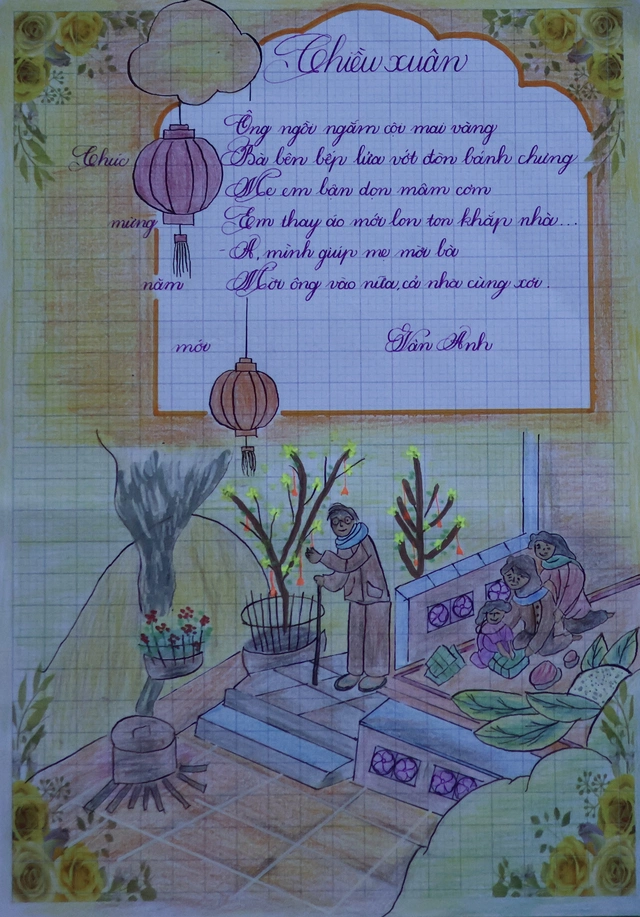 Chiều xuân
Ông ngồi ngắm cội mai vàng
Bà bên bếp lửa vớt đòn bánh chưng
Mẹ em bận dọn mâm cơm
Em thay áo mới lon ton khắp nhà...
- A, mình giúp mẹ mời bà
Mời ông vào nữa, cả nhà cùng xơi.
Vân Anh
Chúc
mừng
năm
mới